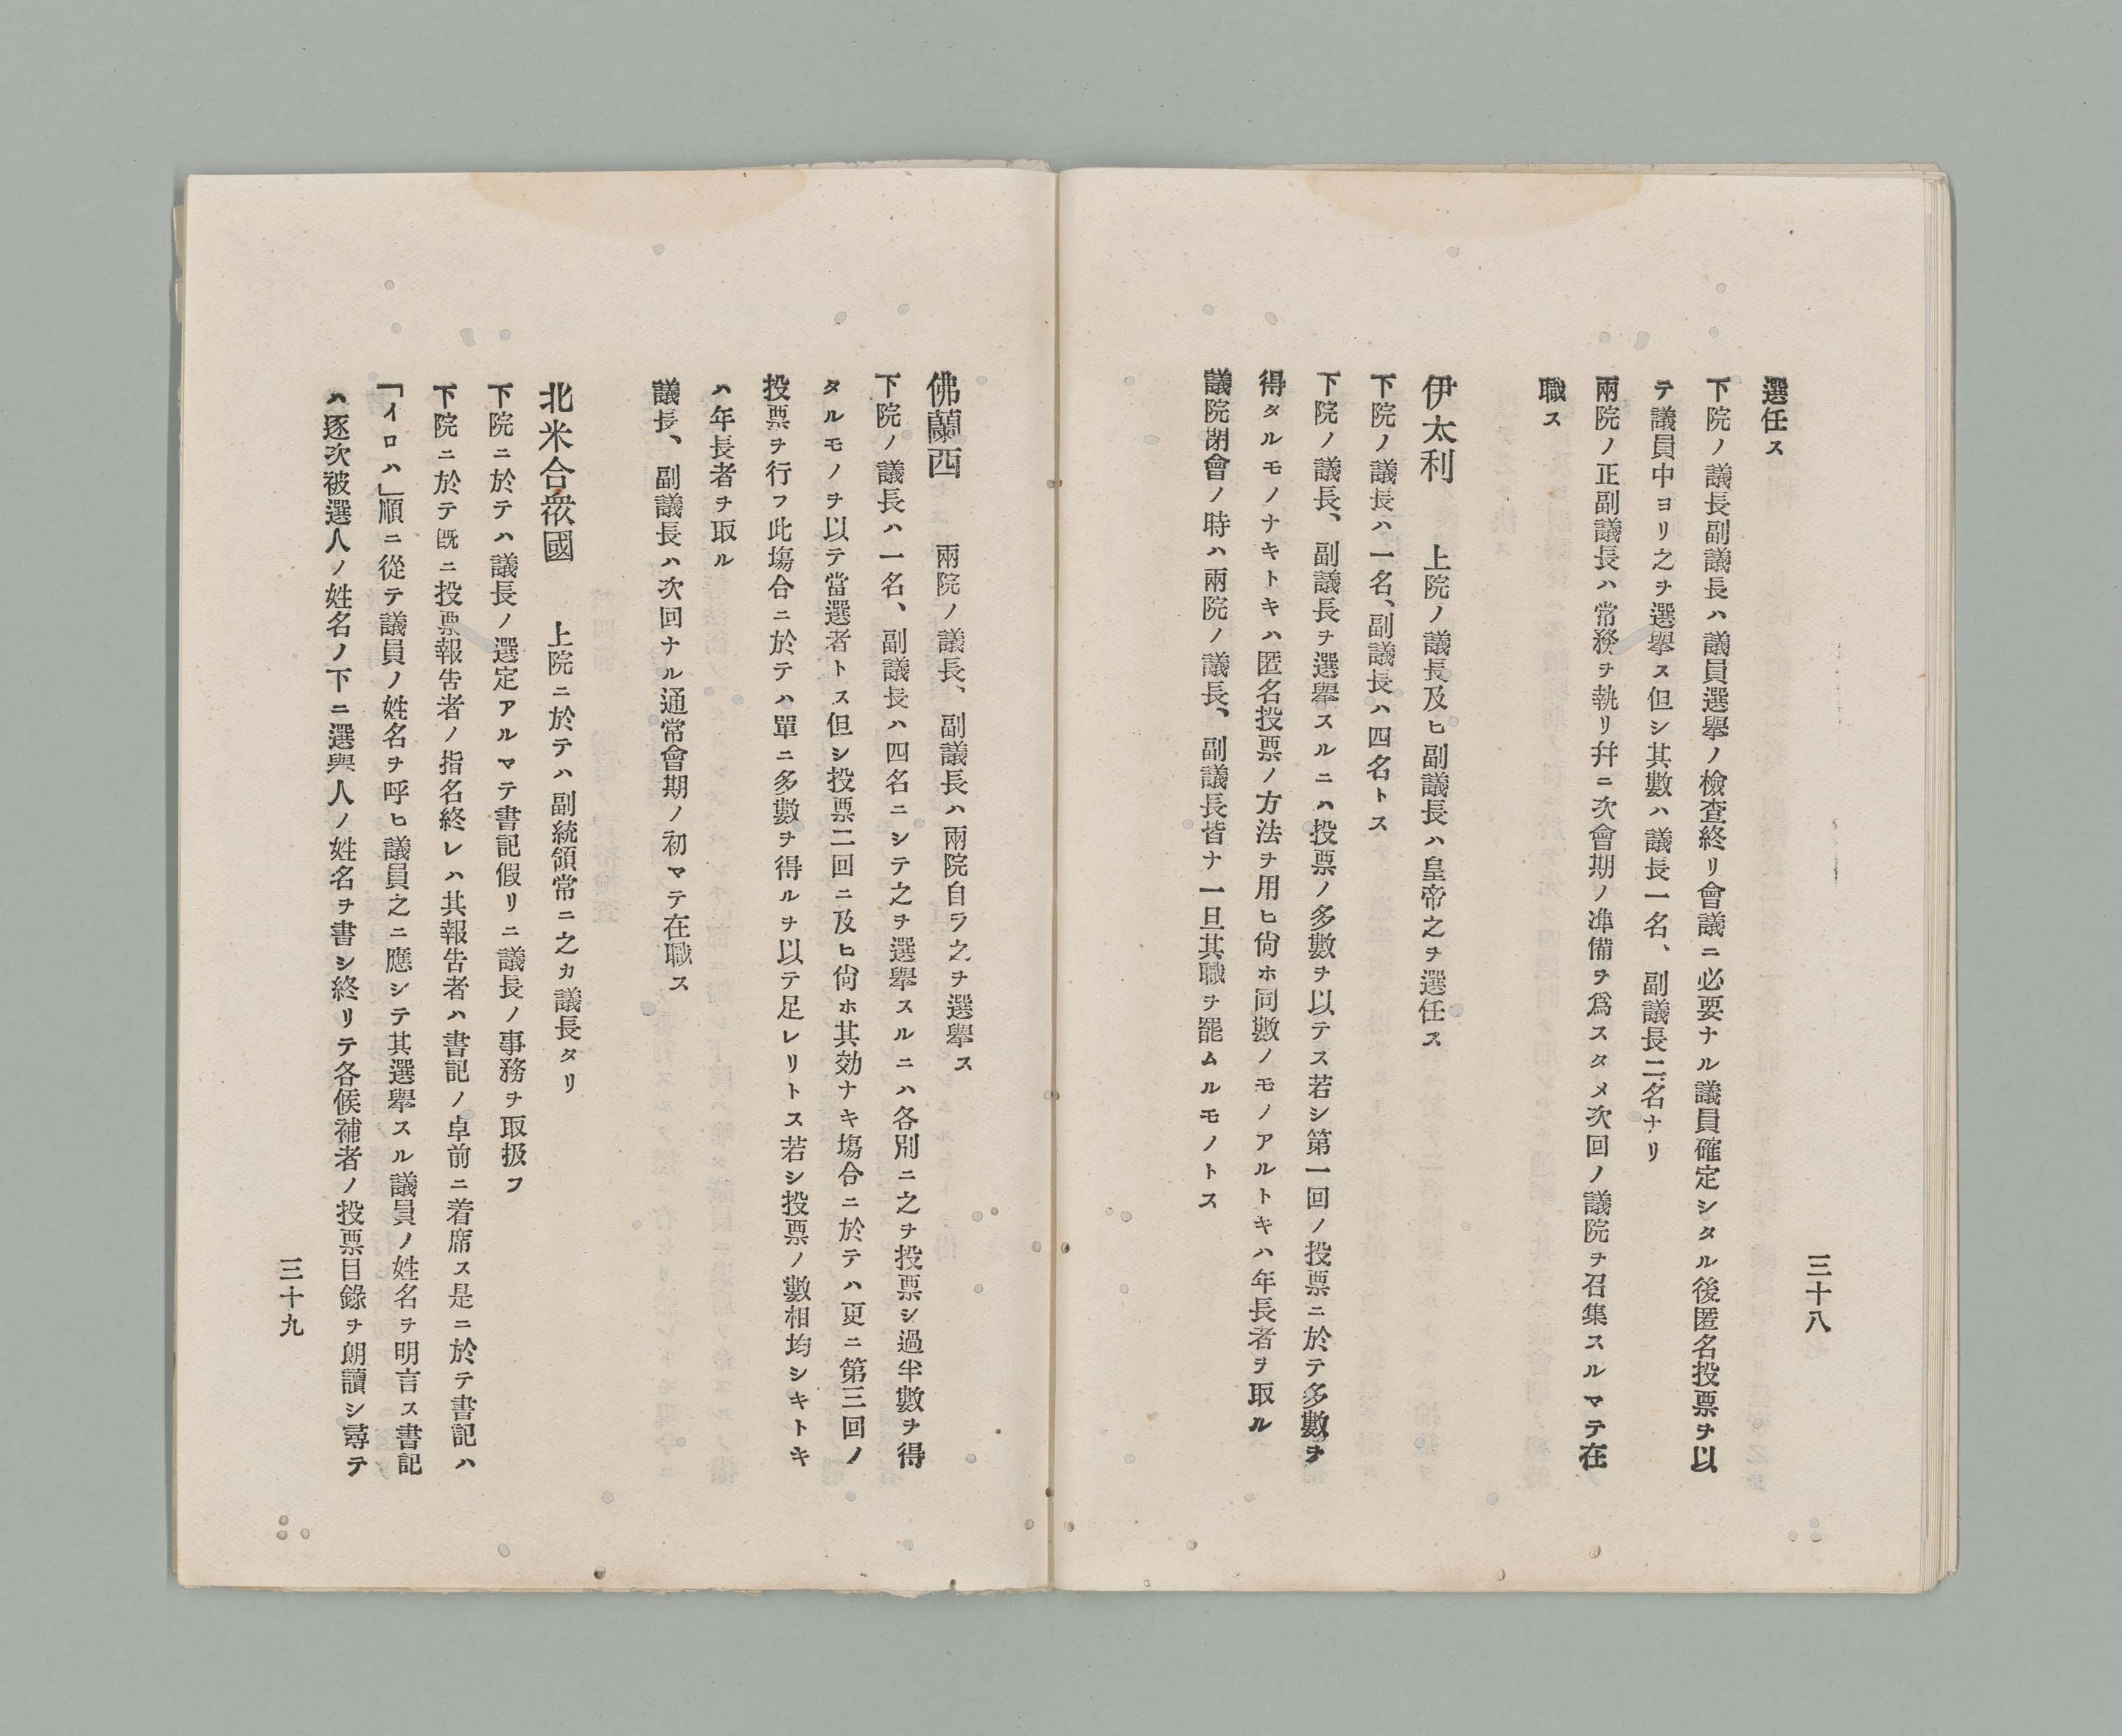 選任ス
下院ノ議長副議長ハ議員選擧ノ檢査終リ會議ニ必要ナル議員確定シタル後匿名投票ヲ以
テ議員中ヨリ之ヲ選擧ス但シ其數ハ議長一名、副議長二名ナリ
兩院ノ正副議長ハ常務ヲ執リ幷ニ次會期ノ準備ヲ爲スタメ次回ノ議院ヲ召集スルマテ在
職ス
伊太利　上院ノ議長及ヒ副議長ハ皇帝之ヲ選任ス
下院ノ議長ハ一名、副議長ハ四名トス
下院ノ議長、副議長ヲ選擧スルニハ投票ノ多數ヲ以テス若シ第一回ノ投票ニ於テ多數ヲ
得タルモノナキトキハ匿名投票ノ方法ヲ用ヒ尙ホ同數ノモノアルトキハ年長者ヲ取ル
議院閉會ノ時ハ兩院ノ議長、副議長皆ナ一旦其職ヲ罷ムルモノトス
三十八
佛蘭西　兩院ノ議長、副議長ハ兩院自ラ之ヲ選擧ス
下院ノ議長ハ一名、副議長ハ四名ニシテ之ヲ選擧スルニハ各別ニ之ヲ投票シ過半數ヲ得
タルモノヲ以テ當選者トス但シ投票二回ニ及ヒ尙ホ其効ナキ塲合ニ於テハ更ニ第三回ノ
投票ヲ行フ此塲合ニ於テハ單ニ多數ヲ得ルヲ以テ足レリトス若シ投票ノ數相均シキトキ
ハ年長者ヲ取ル
議長、副議長ハ次回ナル通常會期ノ初マテ在職ス
北米合衆國　上院ニ於テハ副統領常ニ之カ議長タリ
下院ニ於テハ議長ノ選定アルマテ書記假リニ議長ノ事務ヲ取扱フ
下院ニ於テ既ニ投票報告者ノ指名終レハ其報告者ハ書記ノ卓前ニ着席ス是ニ於テ書記ハ
「イロハ」順ニ從テ議員ノ姓名ヲ呼ヒ議員之ニ應シテ其選擧スル議員ノ姓名ヲ明言ス書記
ハ逐次被選人ノ姓名ノ下ニ選與人ノ姓名ヲ書シ終リテ各候補者ノ投票目錄ヲ朗讀シ尋テ
三十九